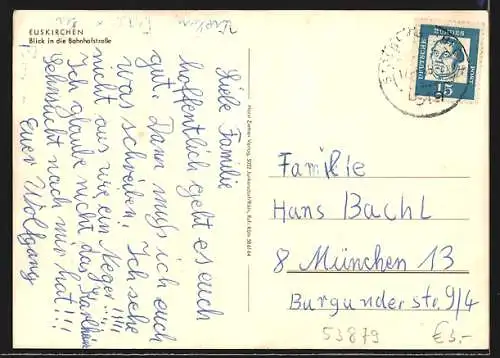 EUSKIRCHEN
Blick in die Bahnhofstraße
Liebe Familie
hoffentlich geht es euch
gut. Dann muß ich euch
was schreiben! Ich sehe
nicht aus wie ein Neger!!!!!
Ich glaube nicht das Karlheinz
Sehnsucht nach mir hat!!!
Euer Wolfgang
DEUTSCHE
BUNDES
POST
15
Familie
Hans Bachl
8 München 13
Burgunderstr. 9/4
53879
€3,-